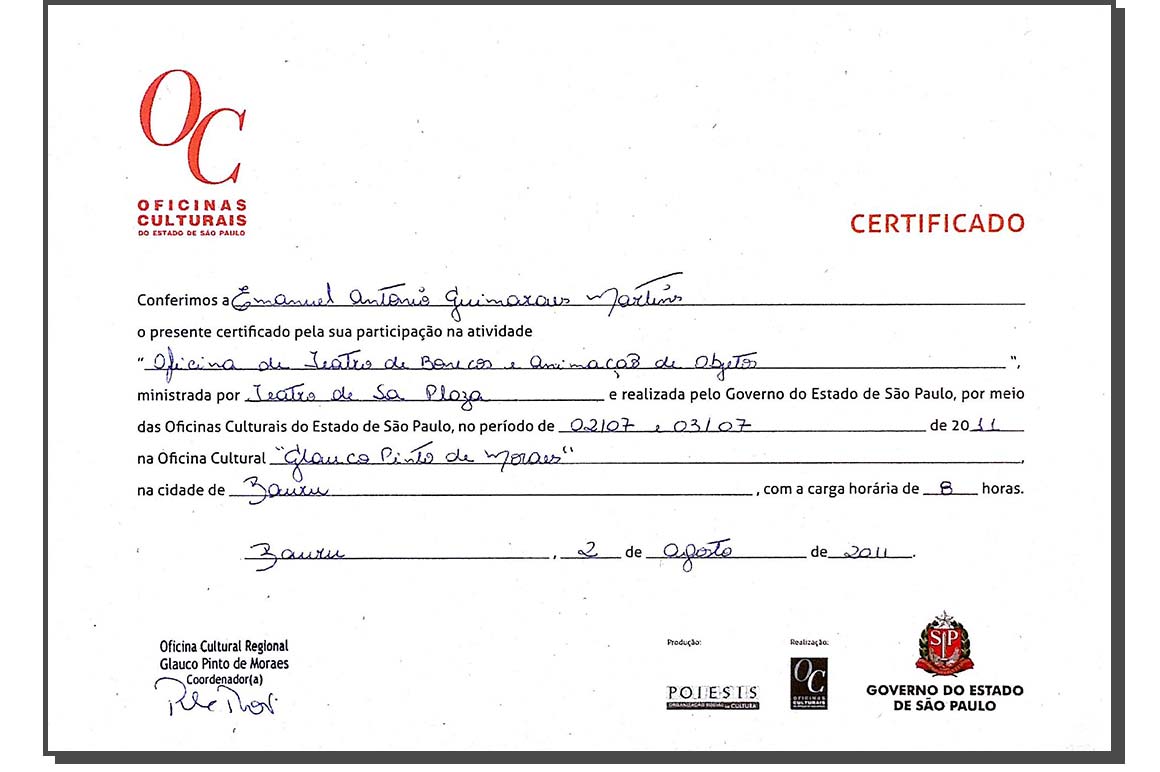 OC
OFICINAS
CULTURAIS
DO ESTADO DE SÃO PAULO
CERTIFICADO
Conferimos a Emanuel Antônio Guimaraes Martins
o presente certificado pela sua participação na atividade
"Oficina de Teatro de Bonecos e Animação de Objetos",
ministrada por Teatro de Sa Plaza e realizada pelo Governo do Estado de São Paulo, por meio
das Oficinas Culturais do Estado de São Paulo, no período de 02/07 e 03/07 de 2011
na Oficina Cultural "Glauco Pinto de Moraes",
na cidade de Bauru, com a carga horária de 8 horas.
Bauru, 2 de agosto de 2011.
Oficina Cultural Regional
Glauco Pinto de Moraes
Coordenador(a)
Produção:
POIESIS
ORGANIZAÇÃO SOCIAL DE CULTURA
Realização:
OC
OFICINAS
CULTURAIS
SP
GOVERNO DO ESTADO
DE SÃO PAULO